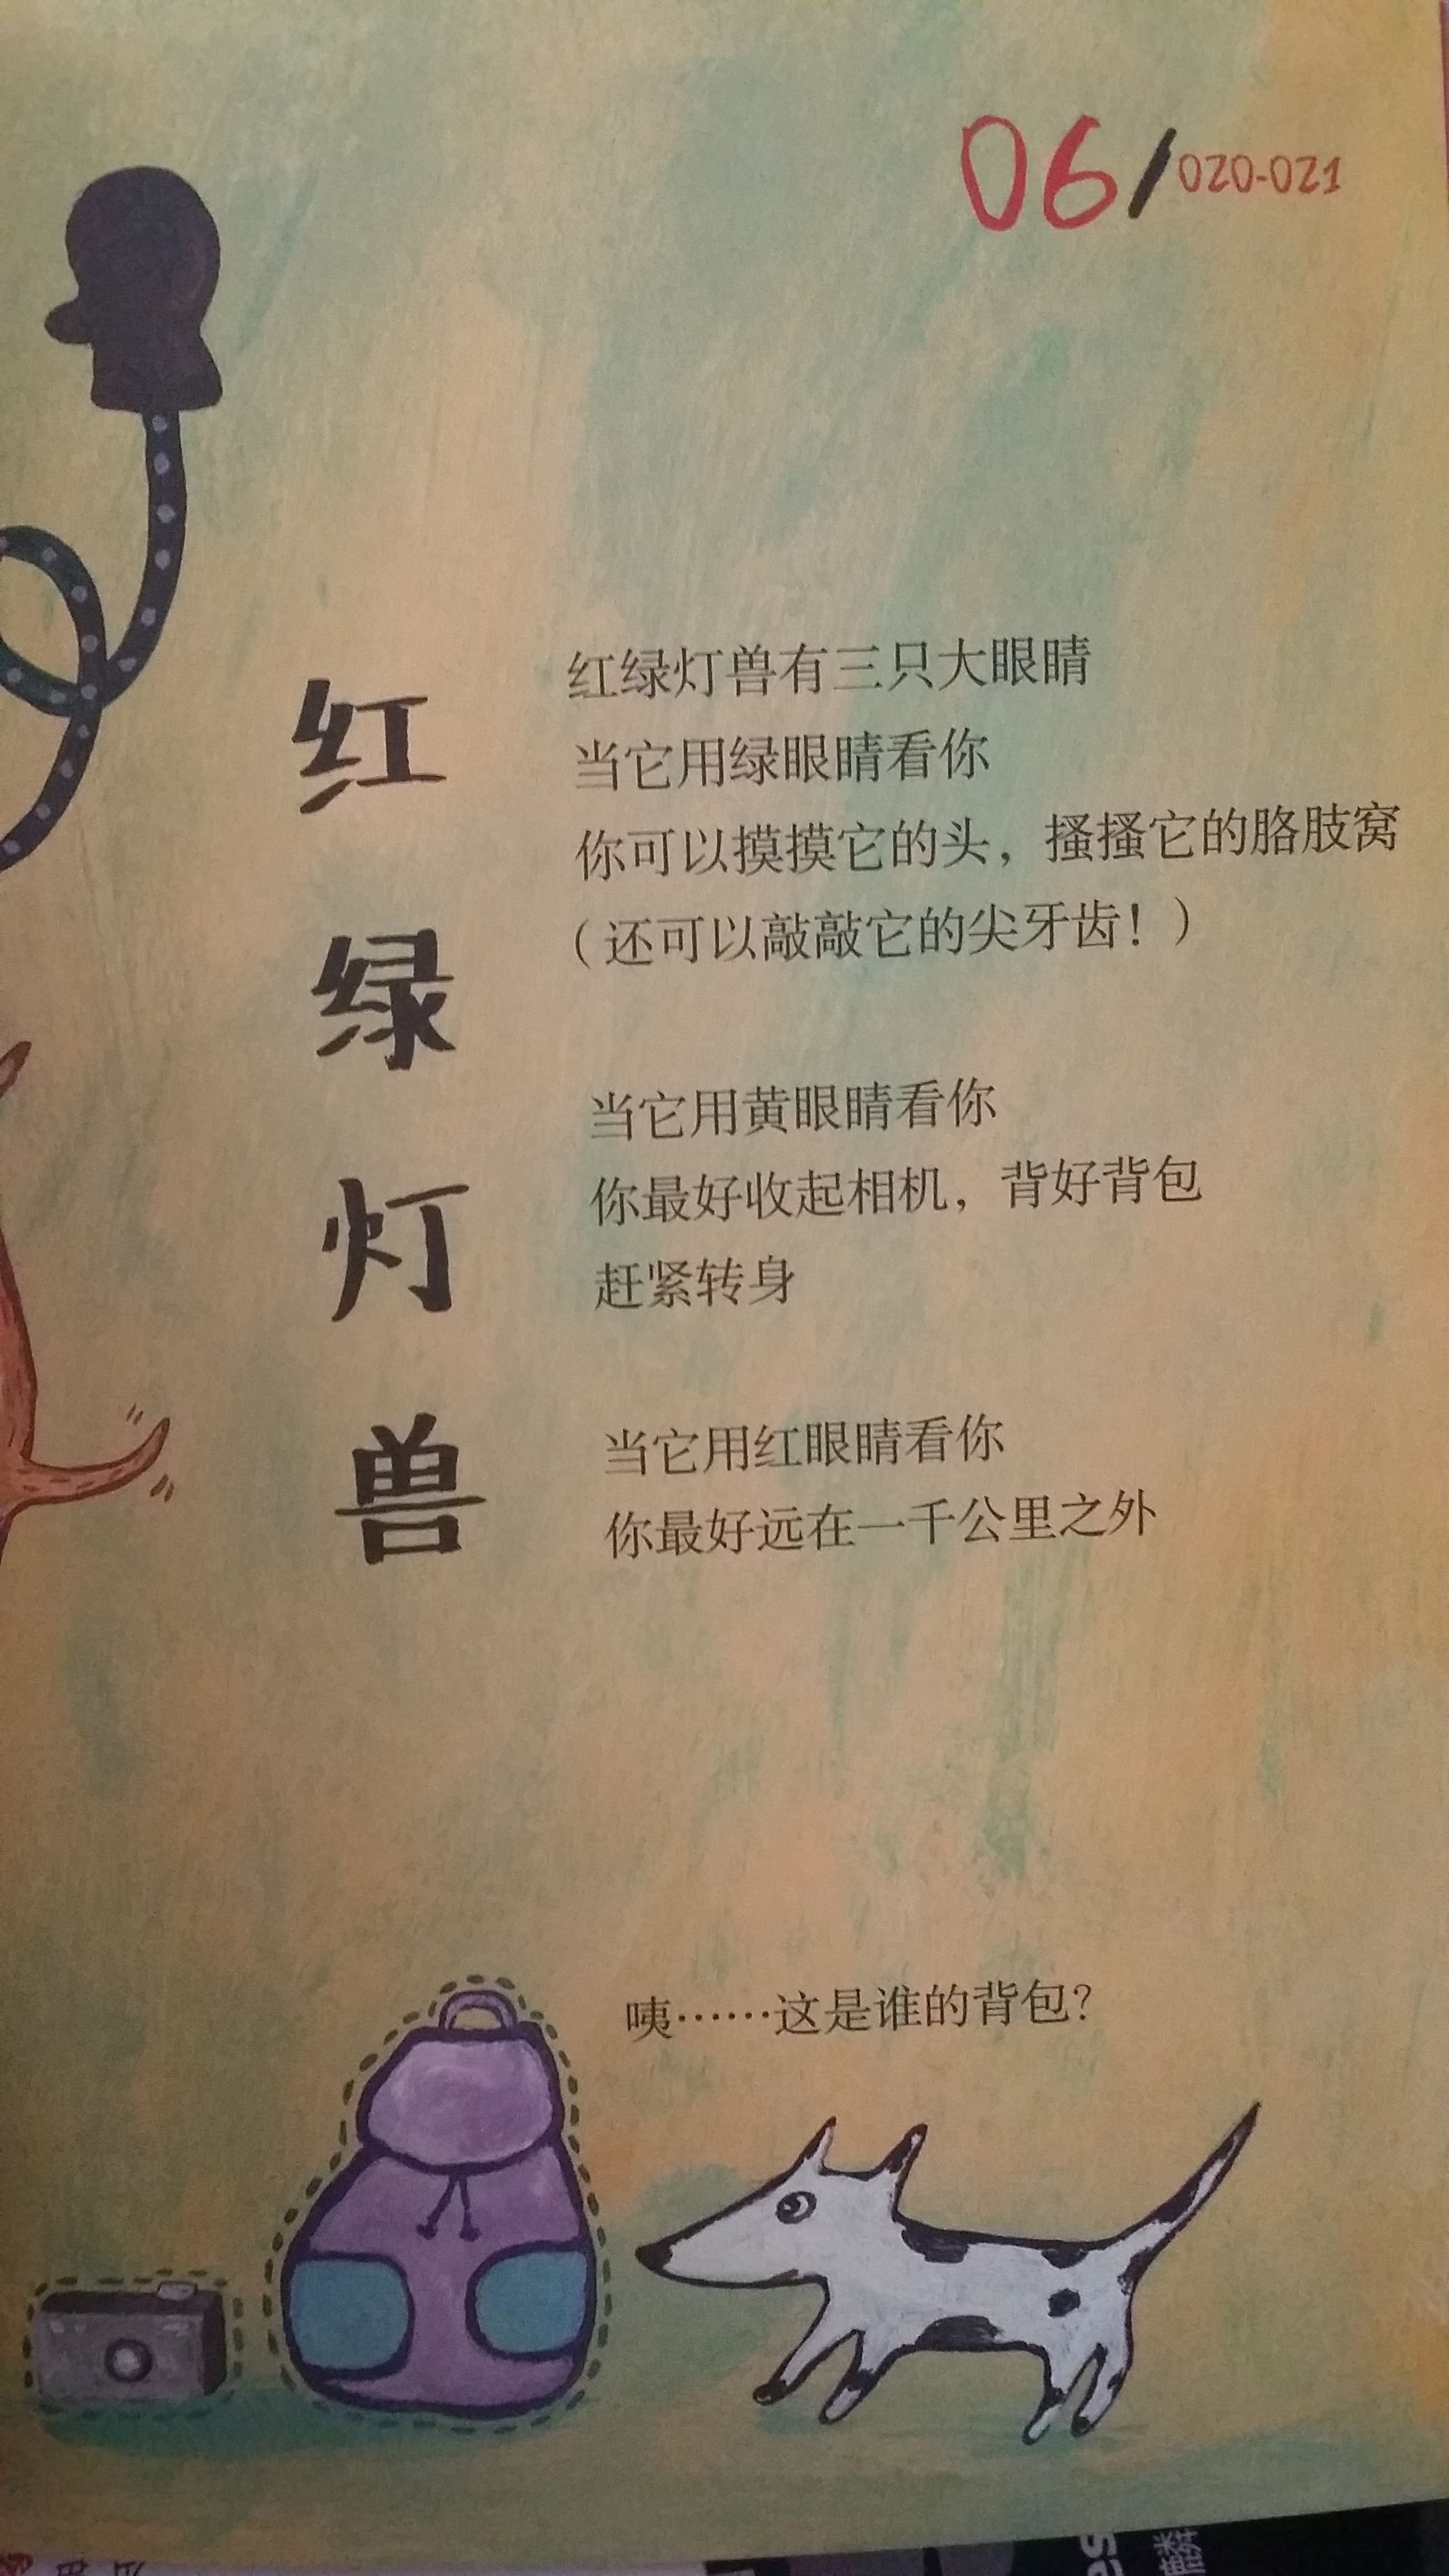 06/020-021
红绿灯兽
红绿灯兽有三只大眼睛
当它用绿眼睛看你
你可以摸摸它的头，搔搔它的胳肢窝
（还可以敲敲它的尖牙齿！）
当它用黄眼睛看你
你最好收起相机，背好背包
赶紧转身
当它用红眼睛看你
你最好远在一千公里之外
咦……这是谁的背包？